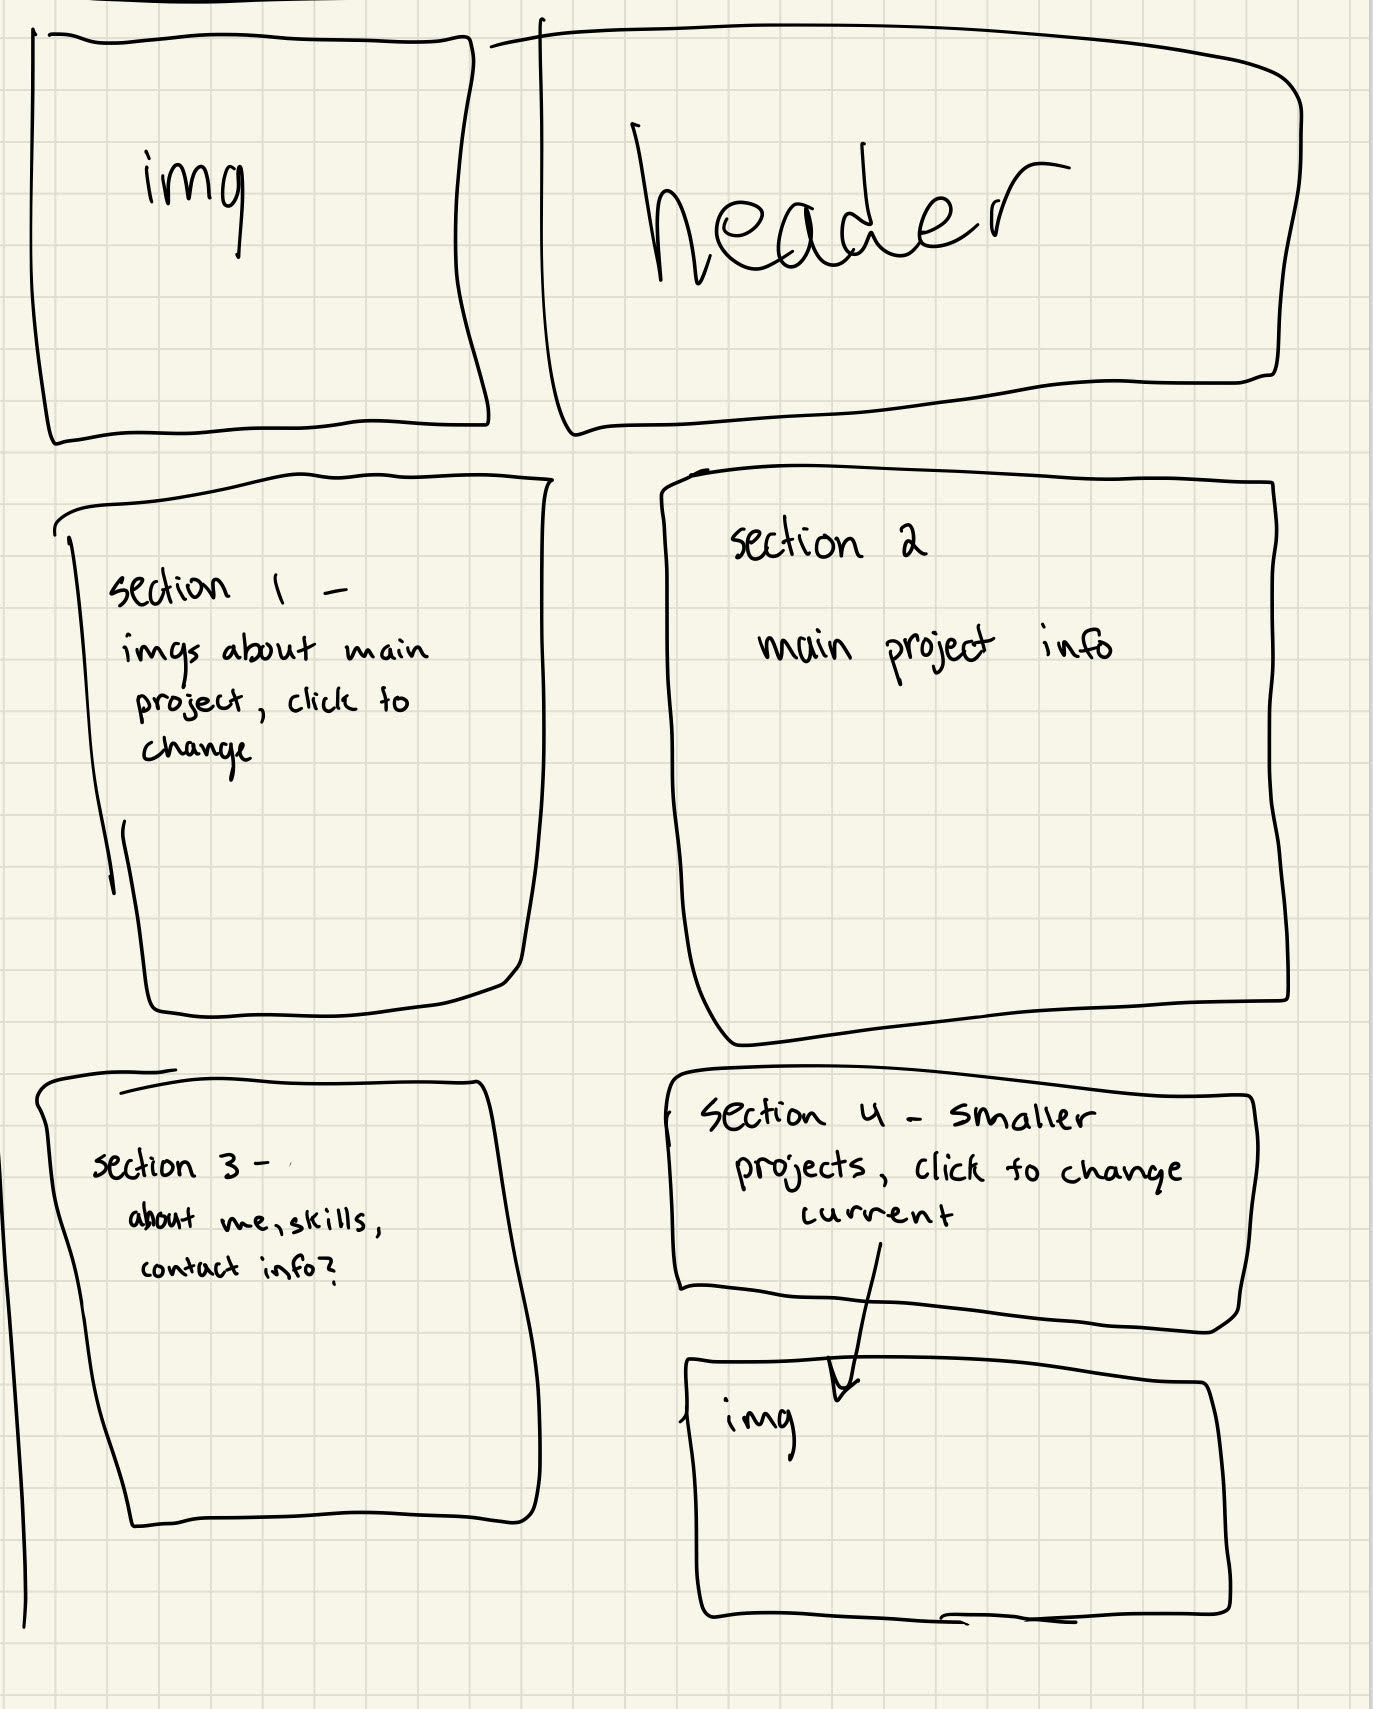 img
header
section 1 -
imgs about main
project, click to
change
section 2
main project info
section 3 -
about me, skills,
contact info?
section 4 - smaller
projects, click to change
current
img